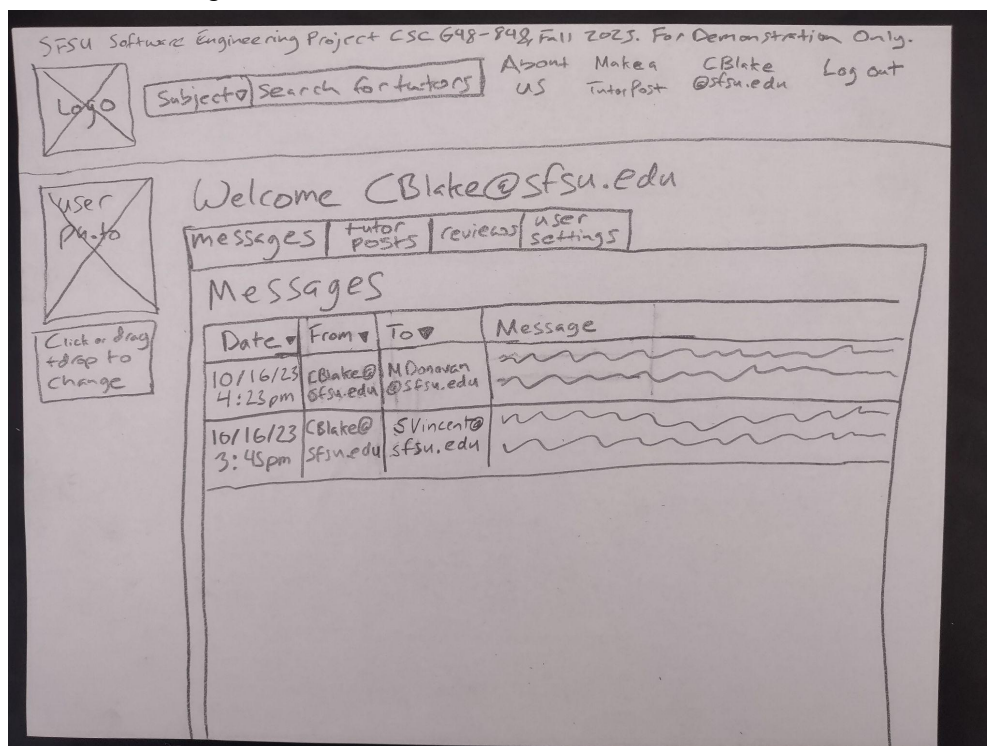 SFSU Software Engineering Project CSC 648-848, Fall 2023. For Demonstration Only.
Logo
Subject
Search for tutors
About
us
Make a
Tutor Post
CBlake
@sfsu.edu
Log out
user
photo
Click or drag
+drop to
change
Welcome CBlake@sfsu.edu
messages
tutor
posts
reviews
user
settings
Messages
Date From To Message
10/16/23
4:23pm
CBlake@
sfsu.edu
MDonavan
@sfsu.edu
10/16/23
3:45pm
CBlake@
sfsu.edu
SVincent@
sfsu.edu